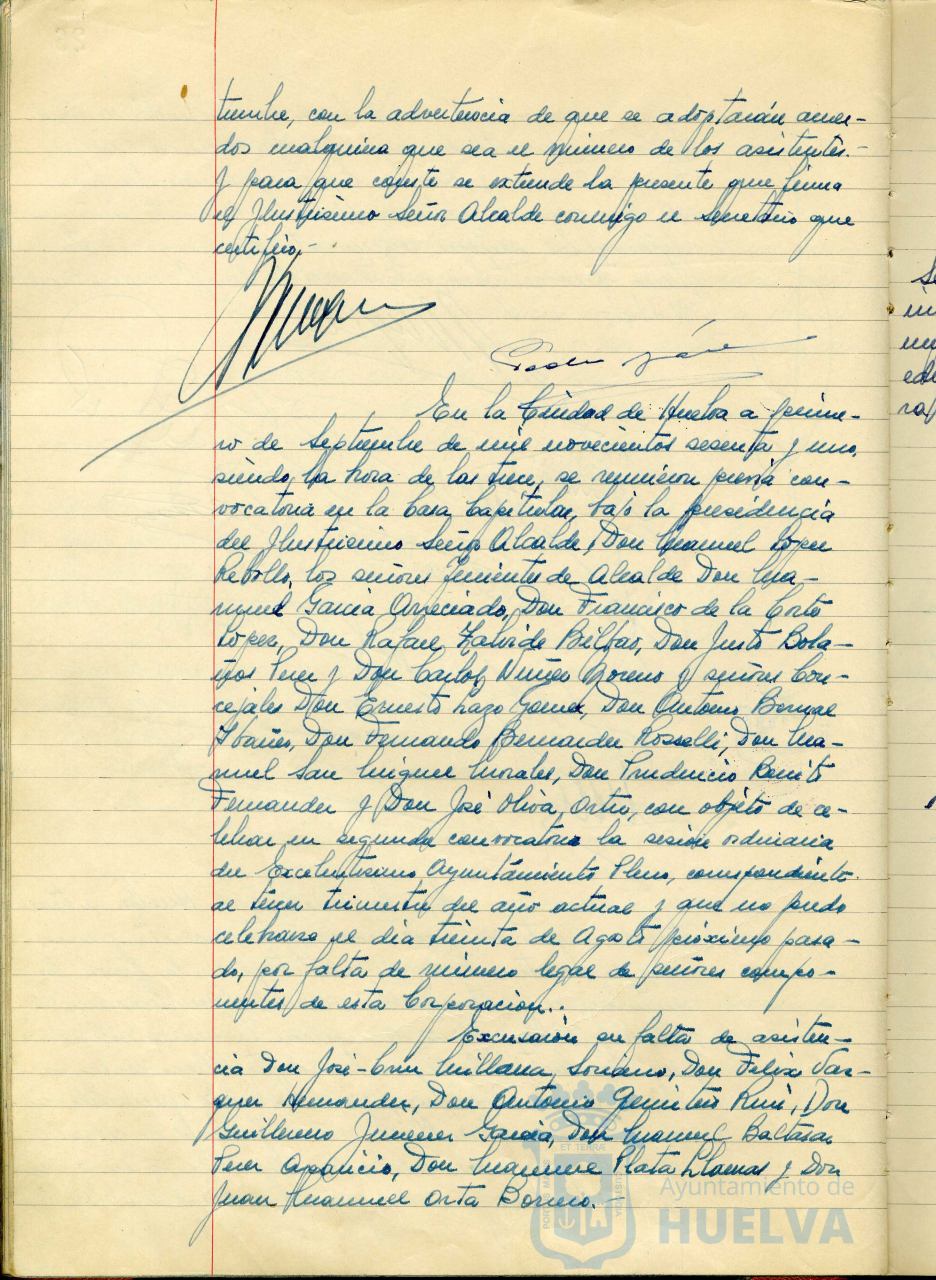 tumbre, con la advertencia de que se adoptarán acuer-
dos cualquiera que sea el número de los asistentes.-
Y para que conste se extiende la presente que firma
el Ilustrisimo Señor Alcalde conmigo el Secretario que
certifico.-
En la Ciudad de Huelva a prime-
ro de Septiembre de mil novecientos sesenta y uno,
siendo la hora de las trece, se reunieron previa con-
vocatoria en la Casa Capitular, bajo la presidencia
del Ilustrisimo Señor Alcalde, Don Manuel López
Rebollo, los señores Tenientes de Alcalde Don Ma-
nuel Garcia Arreciado, Don Francisco de la Corte
López, Don Rafael Zalvide Bilbao, Don Justo Bola-
ños Perez y Don Carlos Núñez Moreno y señores Con-
cejales Don Ernesto Lazo Gomez, Don Antonio Bernal
Ybañez, Don Fernando Bernardez Rosselli, Don Ma-
nuel San Miguel Morales, Don Prudencio Benito
Fernandez y Don José Oliva Ortiz, con objeto de ce-
lebrar en segunda convocatoria la sesión ordinaria
del Excelentisimo Ayuntamiento Pleno, correspondiente
al tercer trimestre del año actual y que no pudo
celebrarse el dia treinta de Agosto próximo pasa-
do, por falta de número legal de señores compo-
nentes de esta Corporación.-
Excusaron su falta de asisten-
cia Don José-Cruz Millana Soriano, Don Felix Vaz-
quez Hernandez, Don Antonio Ruiz, Don
Guillermo Jimenez Garcia, Don Manuel Baltasar
Perez Aparicio, Don Manuel Plata Llamas y Don
Juan Manuel Orta Borrero.-
Ayuntamiento de
HUELVA